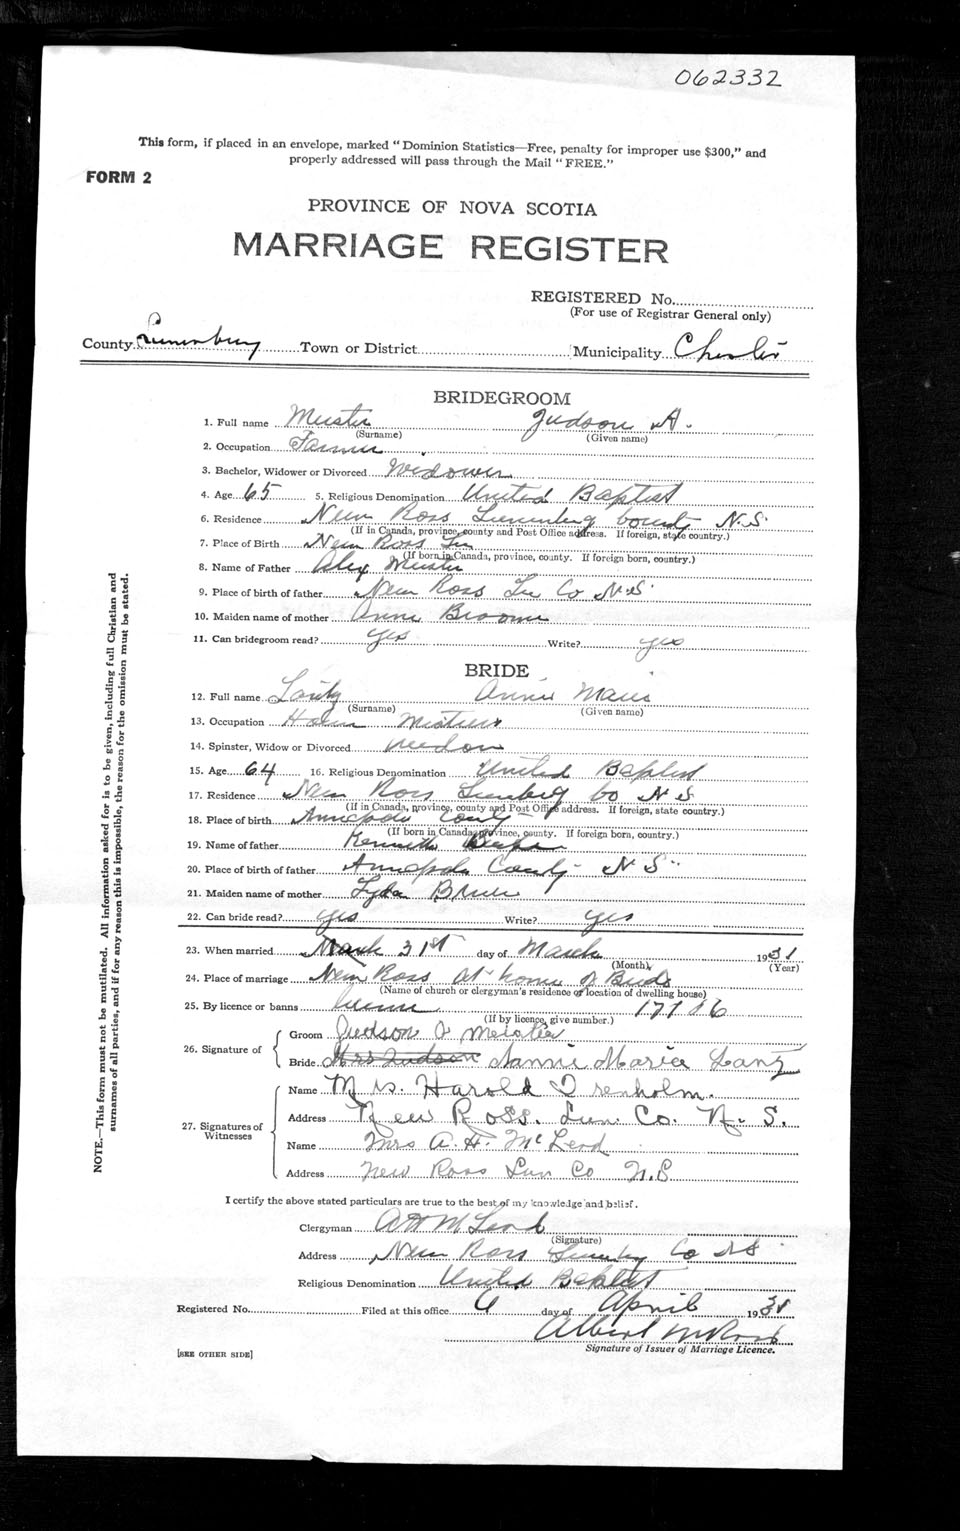 062332
This form, if placed in an envelope, marked "Dominion Statistics—Free, penalty for improper use $300," and
properly addressed will pass through the Mail "FREE."
FORM 2
PROVINCE OF NOVA SCOTIA
MARRIAGE REGISTER
REGISTERED No.
(For use of Registrar General only)
County Lunenburg Town or District Municipality Chester
BRIDEGROOM
1. Full name Meister Judson A.
(Surname) (Given name)
2. Occupation Farmer
3. Bachelor, Widower or Divorced Widower
4. Age 65 5. Religious Denomination United Baptist
6. Residence New Ross Lunenburg County N.S.
(If in Canada, province, county and Post Office address. If foreign, state country.)
7. Place of Birth New Ross Lun
(If born in Canada, province, county. If foreign born, country.)
8. Name of Father Alex Meister
9. Place of birth of father New Ross Lun Co N.S.
10. Maiden name of mother Annie Broom
11. Can bridegroom read? Yes Write? yes
BRIDE
12. Full name Lantz Annie Marie
(Surname) (Given name)
13. Occupation
14. Spinster, Widow or Divorced Widow
15. Age 64 16. Religious Denomination United Baptist
17. Residence New Ross Lunenburg Co N S
(If in Canada, province, county and Post Office address. If foreign, state country.)
18. Place of birth Annapolis County
(If born in Canada, province, county. If foreign born, country.)
19. Name of father Kenneth
20. Place of birth of father Annapolis County N S
21. Maiden name of mother Lyda
22. Can bride read? yes Write? yes
23. When married March 31st day of March 1931
(Month) (Year)
24. Place of marriage New Ross at home of Bride
(Name of church or clergyman's residence or location of dwelling house)
25. By licence or banns license 17106
(If by licence, give number.)
26. Signature of
Groom Judson A Meister
Bride Mrs Judson Nannie Maria Lantz
27. Signatures of Witnesses
Name Mrs. Harold Trenholm.
Address New Ross. Lun. Co. N. S.
Name Mrs A. H. McLeod
Address New Ross Lun Co N.S
I certify the above stated particulars are true to the best of my knowledge and belief.
Clergyman A H McLeod
(Signature)
Address New Ross Lunenburg Co N S
Religious Denomination United Baptist
Registered No. Filed at this office 6 day of April 1931
Albert
Signature of Issuer of Marriage Licence.
[SEE OTHER SIDE]
NOTE.—This form must not be mutilated. All Information asked for is to be given, including full Christian and
surnames of all parties, and if for any reason this is impossible, the reason for the omission must be stated.